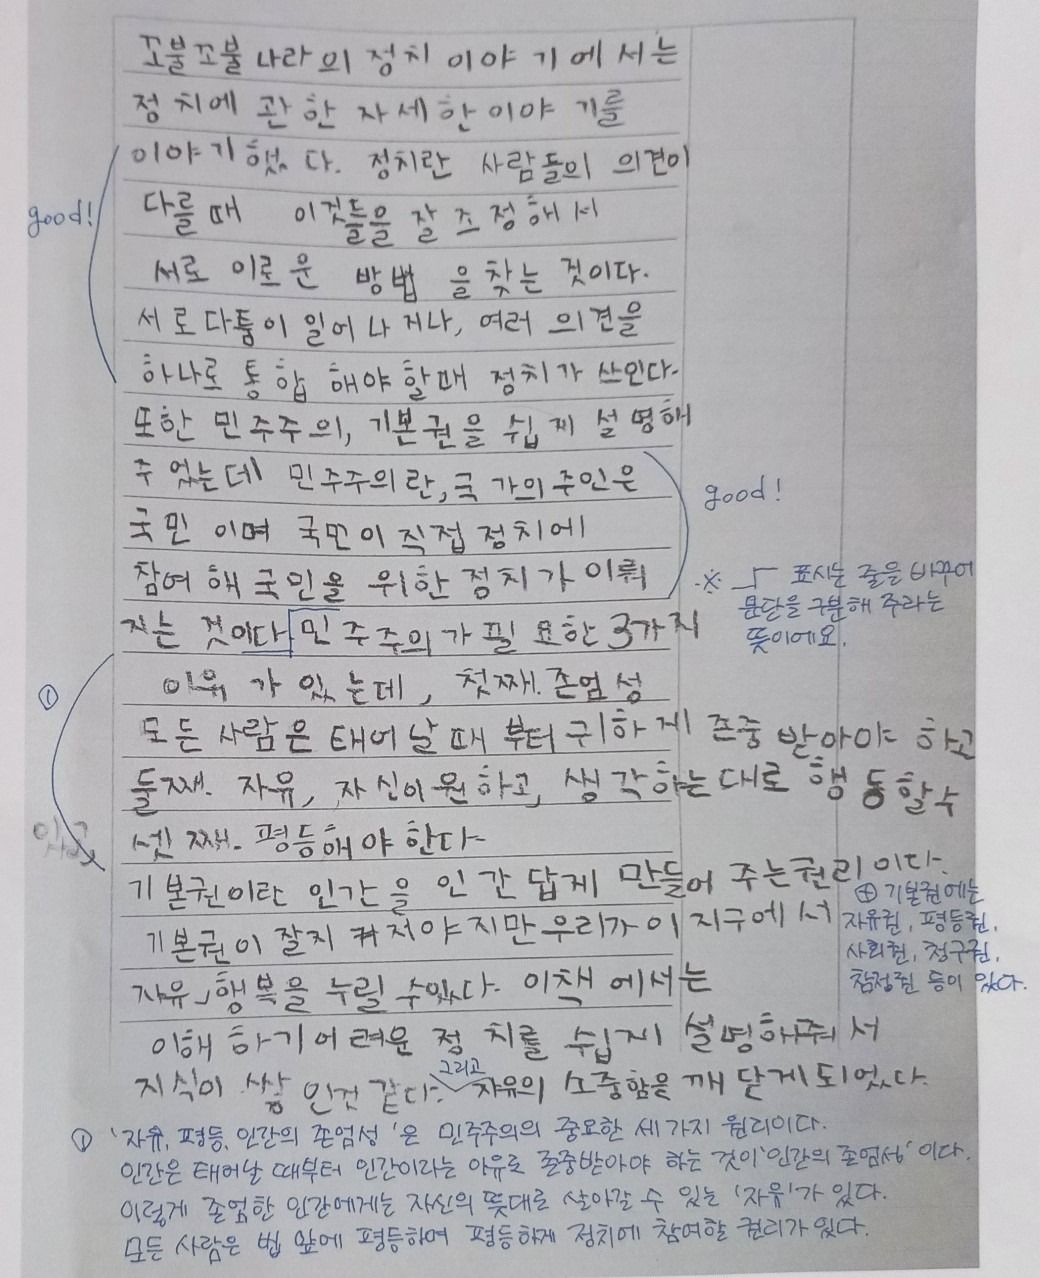 꼬불꼬불나라의 정치 이야기에서는
정치에 관한 자세한 이야기를
이야기했다. 정치란 사람들의 의견이
good!
다를때 이것들을 잘 조정해서
서로 이로운 방법을 찾는 것이다.
서로다툼이 일어나거나, 여러 의견을
하나로 통합해야할때 정치가 쓰인다.
또한 민주주의, 기본권을 쉽게 설명해
주었는데 민주주의란, 국가의 주인은
good!
국민이며 국민이 직접 정치에
참여해 국민을 위한 정치가 이뤄
※ 표시는 줄을 바꾸어
문단을 구분해 주라는
뜻이에요.
지는 것이다 민주주의가 필요한 3가지
①
이유가 있는데, 첫째. 존엄성
모든 사람은 태어날때부터 귀하게 존중 받아야 하고
둘째. 자유, 자신이원하고, 생각하는대로 행동할수
있고,
셋째. 평등해야한다.
기본권이란 인간을 인간답게 만들어 주는권리이다.
⊕ 기본권에는
자유권, 평등권,
사회권, 청구권,
참정권 등이 있다.
기본권이 잘지켜저야지만 우리가 이 지구에서
자유, 행복을 누릴수있다. 이책에서는
이해하기어려운 정치를 쉽게 설명해줘서
지식이 쌓인것 같다. 그리고 자유의 소중함을 깨닫게되었다.
① '자유, 평등, 인간의 존엄성'은 민주주의의 중요한 세가지 원리이다.
인간은 태어날 때부터 인간이라는 이유로 존중받아야 하는 것이 '인간의 존엄성'이다.
이렇게 존엄한 인간에게는 자신의 뜻대로 살아갈 수 있는 '자유'가 있다.
모든 사람은 법 앞에 평등하며 평등하게 정치에 참여할 권리가 있다.